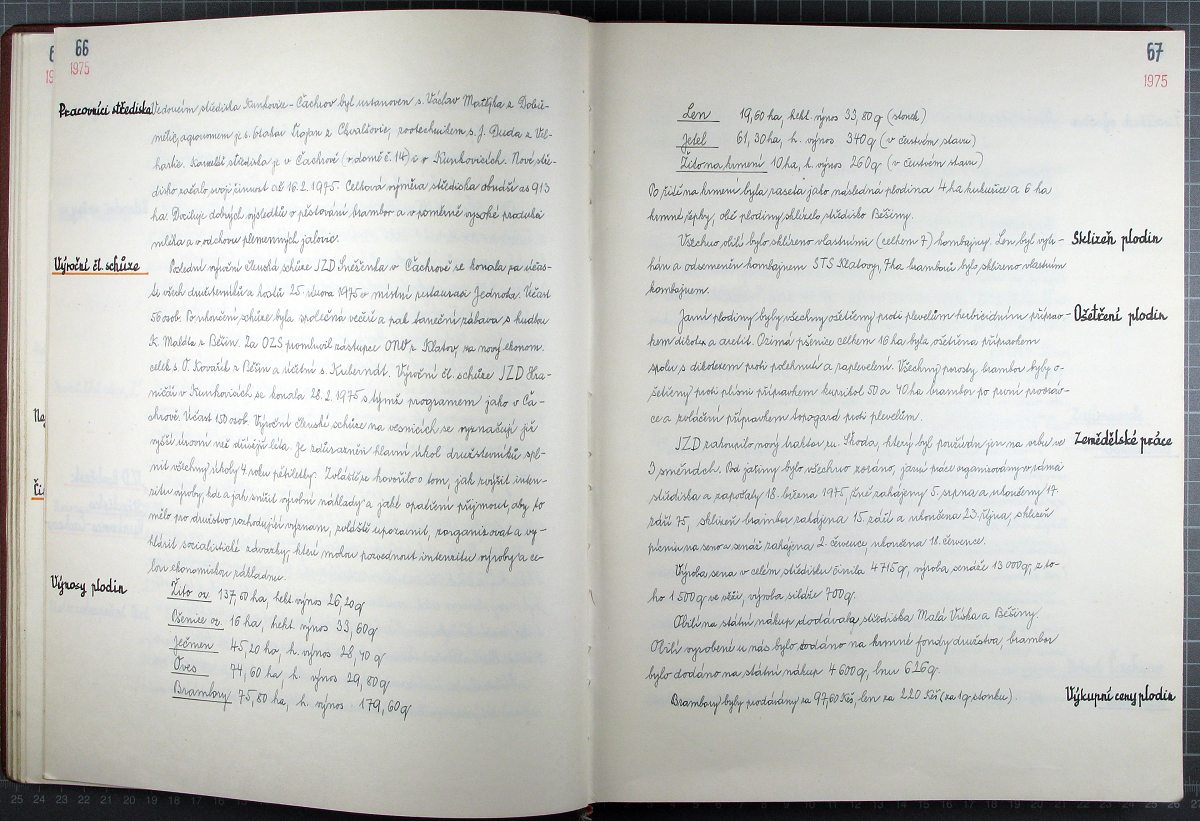 66
1975
Pracovníci střediska
Vedoucím střediska Kunkovice - Čachrov byl ustanoven s. Václav Matějka z Dobře-
mělic, agronomem je s. Otakar Trojan z Chvalšovic, zootechnikem s. J. Duda z Vel-
hartic. Kancelář střediska je v Čachrově (v domě č. 14) a v Kunkovicích. Nové stře-
disko začalo svoji činnost až 16. 2. 1975. Celková výměra střediska obnáší as 913
ha. Dociluje dobrých výsledků v pěstování brambor a v poměrně vysoké produkci
mléka a v odchovu plemenných jalovic.
Výroční čl. schůze
Poslední výroční členská schůze JZD Sněženka v Čachrově se konala za účas-
ti všech družstevníků a hostů 25. února 1975 v místní restauraci Jednota. Účast
56 osob. Po ukončení schůze byla společná večeře a pak taneční zábava s hudbou
K. Maldta z Běšin. Za OZS promluvil zástupce ONV z Klatov, za nový ekonom.
celek s. O. Kovařík z Běšin a účetní s. Kubernát. Výroční čl. schůze JZD Hra-
ničář v Kunkovicích se konala 28. 2. 1975 s týmž programem jako v Ča-
chrově. Účast 150 osob. Výroční členské schůze na vesnicích se vyznačují již
vyšší úrovní než dřívější léta. Je zdůrazněn hlavní úkol družstevníků spl-
nit všechny úkoly 4 roku pětiletky. Zvláště se hovořilo o tom, jak zvýšit inten-
zitu výroby, kde a jak snížit výrobní náklady a jaké opatření přijmout, aby to
mělo pro družstvo rozhodující význam, zvláště upozornit, zorganizovat a vy-
hlásit socialistické závazky, které mohou pozvednout intenzitu výroby a ce-
lou ekonomickou základnu.
Výnosy plodin
Žito oz. 137,60 ha, hekt. výnos 26,20 q
Pšenice oz. 16 ha, hekt. výnos 33,60 q
Ječmen 45,20 ha, h. výnos 28,40 q
Oves 74,60 ha h. výnos 29,80 q
Brambory 75,80 ha, h. výnos 179,60 q
67
1975
Len 19,60 ha, hekt. výnos 33,80 q (stonek)
Jetel 61,30 ha, h. výnos 340 q (v čerstvém stavu)
Žito na krmení 10 ha, h. výnos 260 q (v čerstvém stavu)
Po žitě na krmení byla zaseta jako následná plodina 4 ha kukuřice a 6 ha
krmné řepky, obě plodiny sklízelo středisko Běšiny.
Sklizeň plodin
Všechno obilí bylo sklizeno vlastními (celkem 7) kombajny. Len byl vytr-
hán a odsemeněn kombajnem STS Klatovy, 7 ha bramborů bylo sklizeno vlastním
kombajnem.
Ošetření plodin
Jarní plodiny byly všechny ošetřeny proti plevelům herbicidním příprav-
kem dikotex a aretit. Ozimá pšenice celkem 16 ha byla ošetřena přípravkem
spolu s dikotexem proti polehnutí a zaplevelení. Všechny porosty brambor byly o-
šetřeny proti plísni přípravkem kuprikol 50 a 40 ha brambor po první prooráv-
ce a zvláčení přípravkem topogard proti plevelům.
Zemědělské práce
JZD zakoupilo nový traktor zn. Škoda, který byl používán jen na orbu ve
3 směnách. Pod jařiny bylo všechno zoráno, jarní práce organizovány v rámci
střediska a započaty 18. března 1975, žně zahájeny 5. srpna a ukončeny 17.
září 75, sklizeň brambor zahájena 15. září a ukončena 23. října, sklizeň
pícnin na seno a senáž zahájena 2. července, ukončena 18. července.
Výroba sena v celém středisku činila 4 715 q, výroba senáže 13 000 q, z to-
ho 1 500 q ve věži, výroba siláže 700 q.
Obilí na státní nákup dodávala střediska Malá Víska a Běšiny.
Obilí vyrobené u nás bylo dodáno na krmné fondy družstva, brambor
bylo dodáno na státní nákup 4 600 q, lnu 626 q.
Výkupní ceny plodin
Brambory byly prodávány za 97,60 Kčs, len za 220 Kčs (za 1 q stonku).